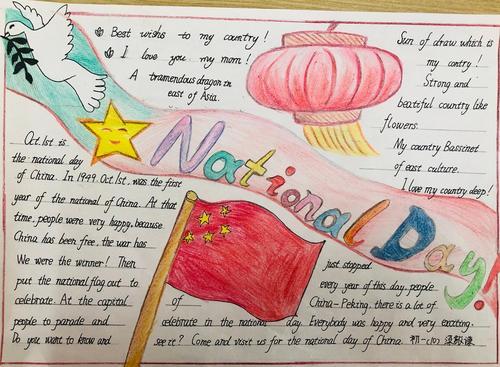 Best wishes to my country!
I love you my mom!
A tramendous dragon in
east of Asia.
Sun of draw which is
my contry!
Strong and
beatiful country like
flowers.
My country Bassenet
of east culture.
I love my country deep!
National Day!
Oct.1st is
the national day
of China. In 1949. Oct.1st, was the first
year of the national of China. At that
time, people were very happy, because
China has been free, the war has
We were the winner! Then
put the national flag out to
celebrate. At the capital
people to parade and
Do you want to know and
just stopped.
every year of this day, people
of China-Peking, there is a lot of
celebrate in the national day. Everybody was happy and very exciting.
see it? Come and visit us for the national day of China. 初一(10)